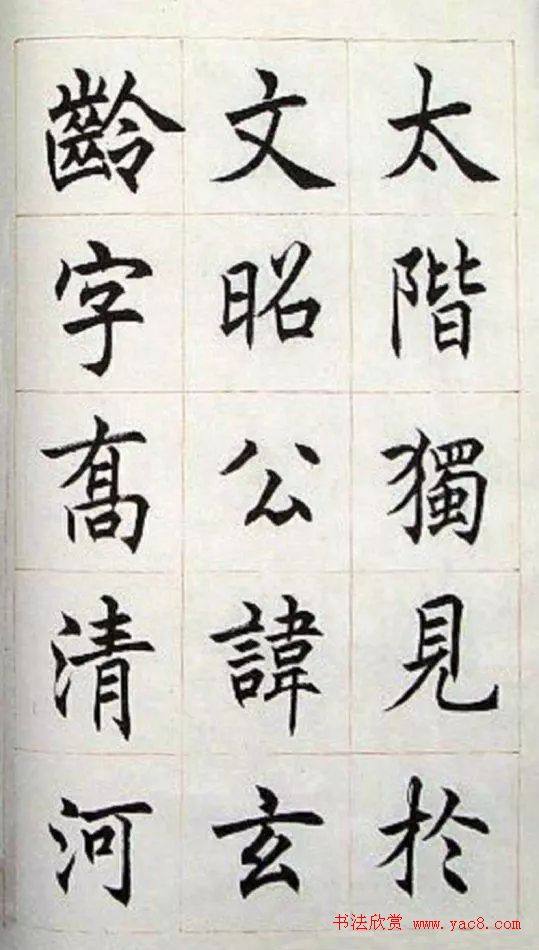 太階獨見於
文昭公諱玄
齡字喬清河
书法欣赏 www.yac8.com